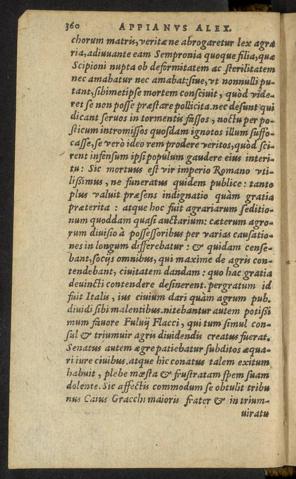 360 APPIANVS ALEX.
chorum matris, veritæ ne abrogaretur lex agra
ria, adiuuante eam Sempronia quoque filia, quæ
Scipioni nupta ob deformitatem ac sterilitatem
nec amabatur nec amabat: siue, vt nonnulli pu-
tant, sibimetipse mortem consciuit, quòd vide-
ret se non posse præstare pollicita. nec desunt qui
dicant seruos in tormentis fassos, noctu per po-
sticum intromissos quosdam ignotos illum suffo-
casse, se verò ideo rem prodere veritos, quòd sci-
rent infensum ipsi populum gaudere eius interi-
tu: Sic mortuus est vir imperio Romano vti-
lissimus, ne funeratus quidem publice: tanto
plus valuit præsens indignatio quàm gratia
præterita: atque hoc fuit agrariarum seditio-
num quoddam quasi auctarium: cæterum agro-
rum diuisio à possessoribus per varias causatio-
nes in longum differebatur: & quidam cense-
bant, socijs omnibus, qui maxime de agris con-
tendebant, ciuitatem dandam: quo hac gratia
deuincti contendere desinerent. pergratum id
fuit Italis, ius ciuium dari quàm agrum pub.
diuidi sibi malentibus. nitebantur autem potissi
mum fauore Fuluij Flacci, qui tum simul con-
sul & triumuir agris diuidendis creatus fuerat.
Senatus autem ægre patiebatur subditos æqua-
ri iure ciuibus. atque hic conatus talem exitum
habuit, plebe mœsta & frustratam spem suam
dolente. Sic affectis commodum se obtulit tribu
nus Caius Gracchi maioris frater & in trium-
uiratu